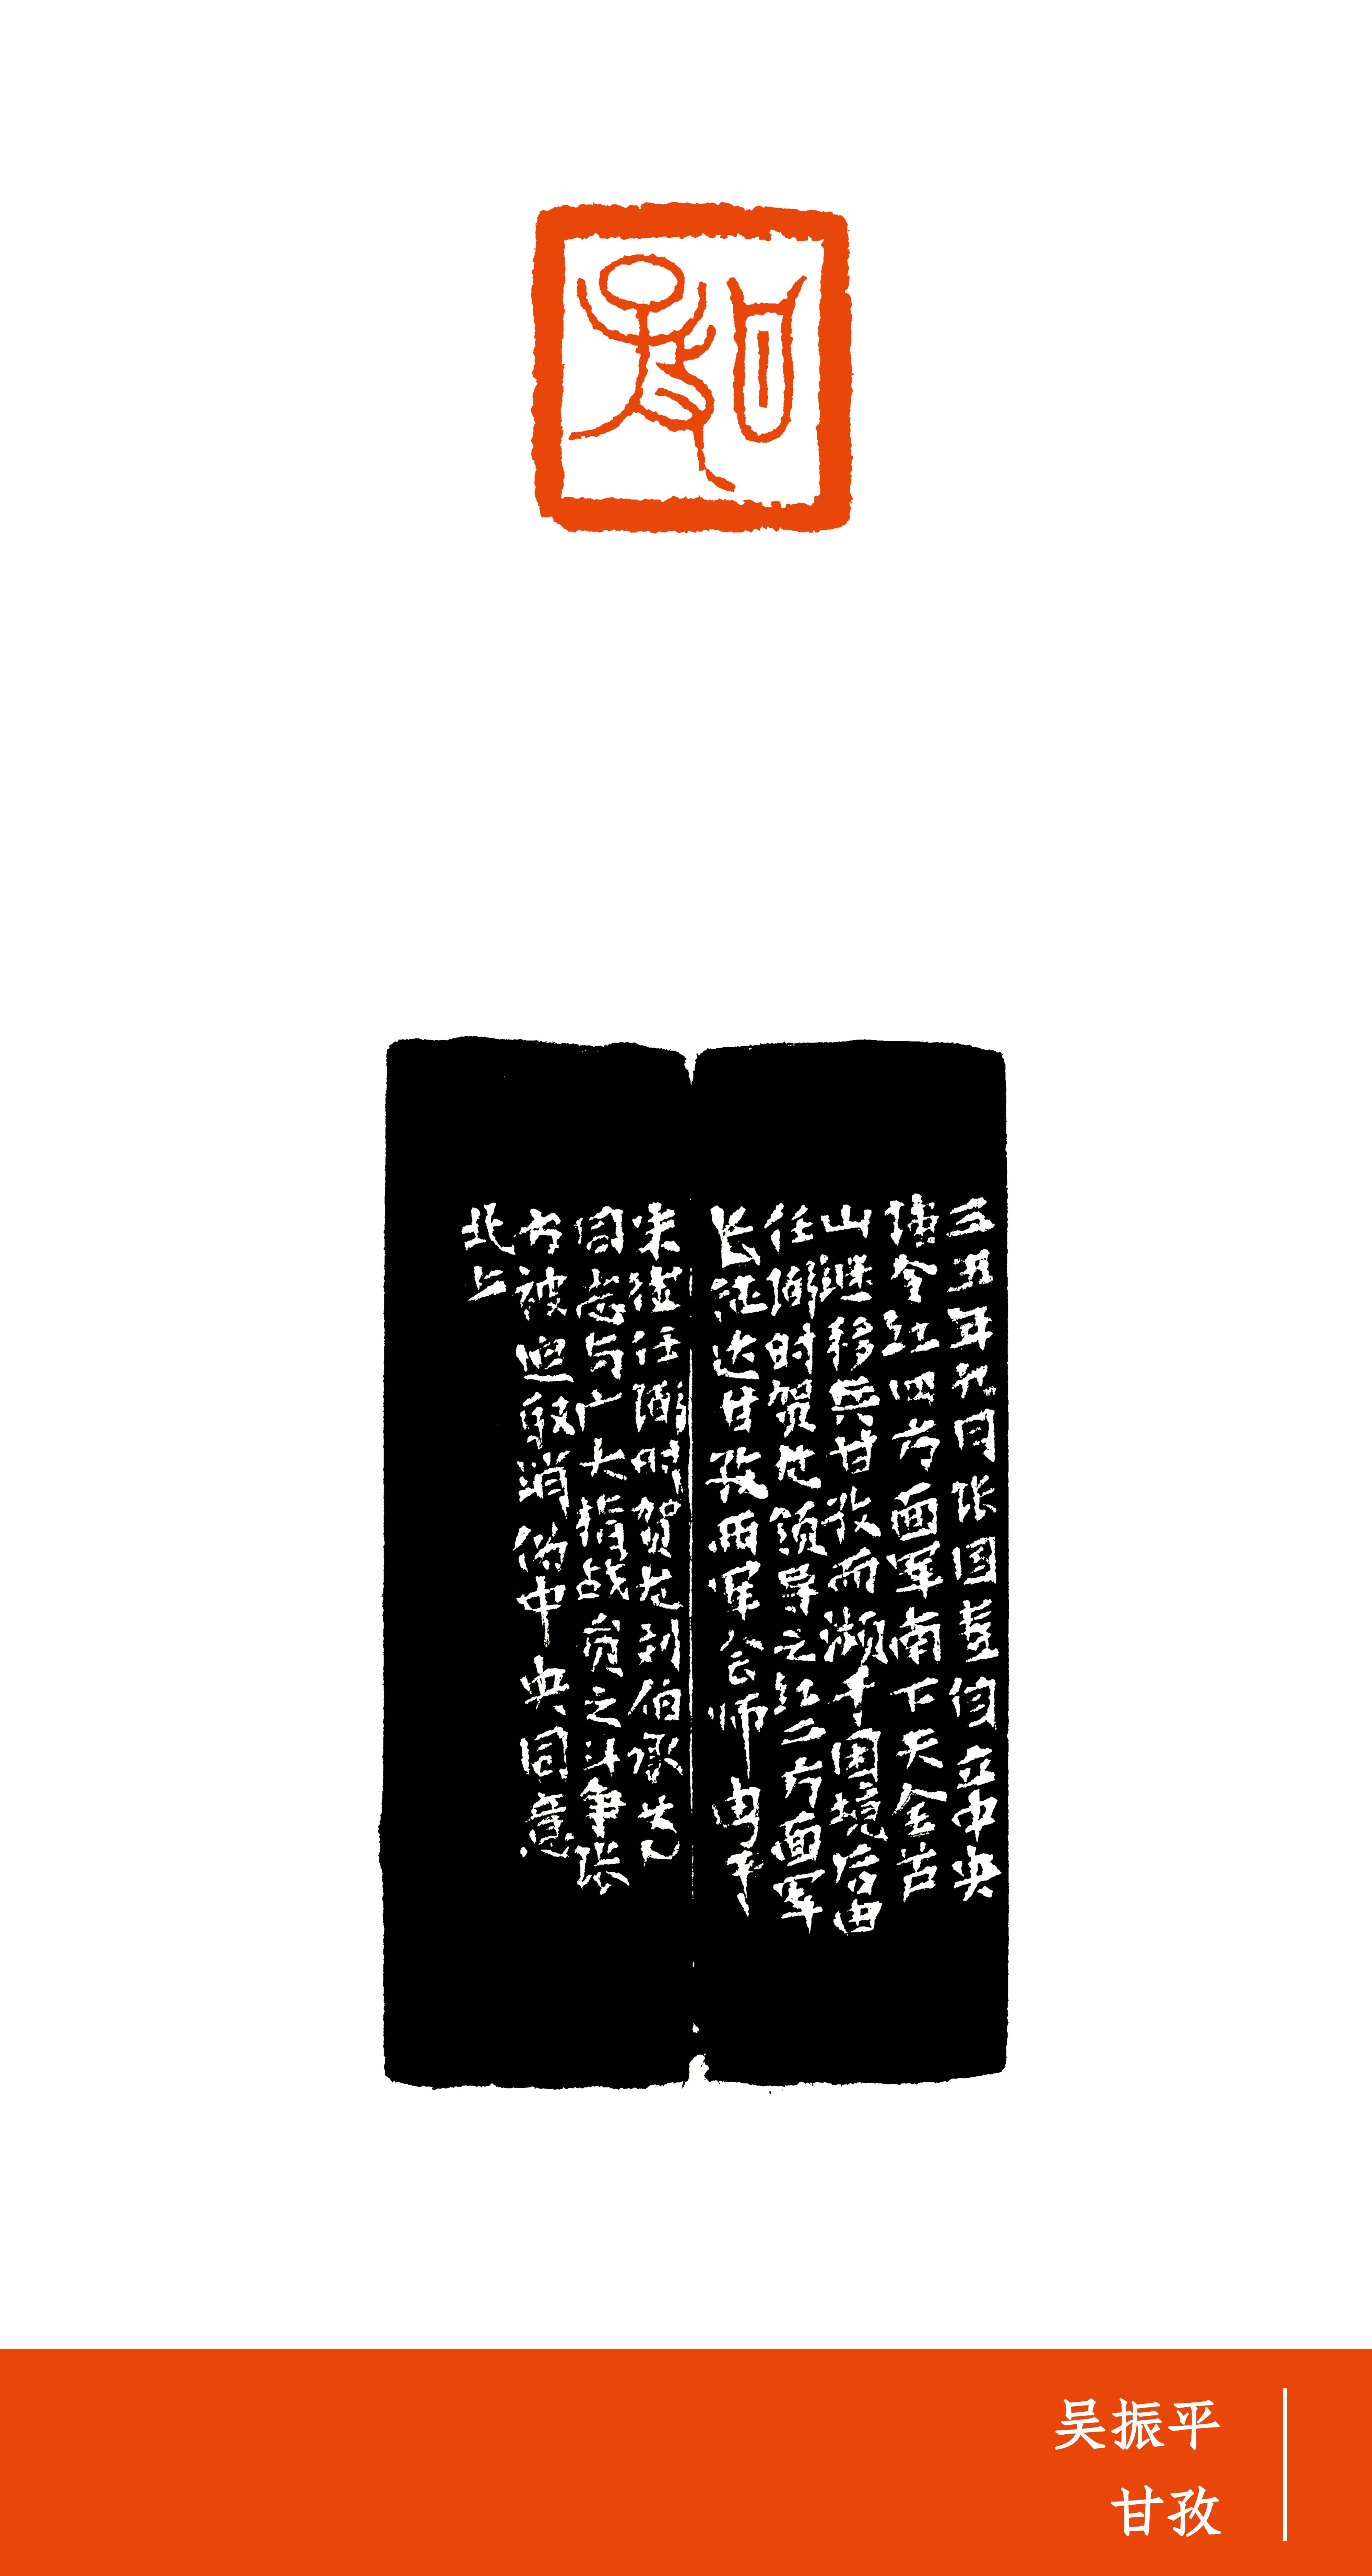 甘孜
三五年九月张国焘自立中央
令红四方面军南下天全芦
山继移兵甘孜而濒于困境后由
任弼时贺龙领导之红二方面军
长征达甘孜两军会师由于
朱德任弼时贺龙刘伯承等
同志与广大指战员之斗争张
方被迫取消伪中央同意
北上
吴振平
甘孜